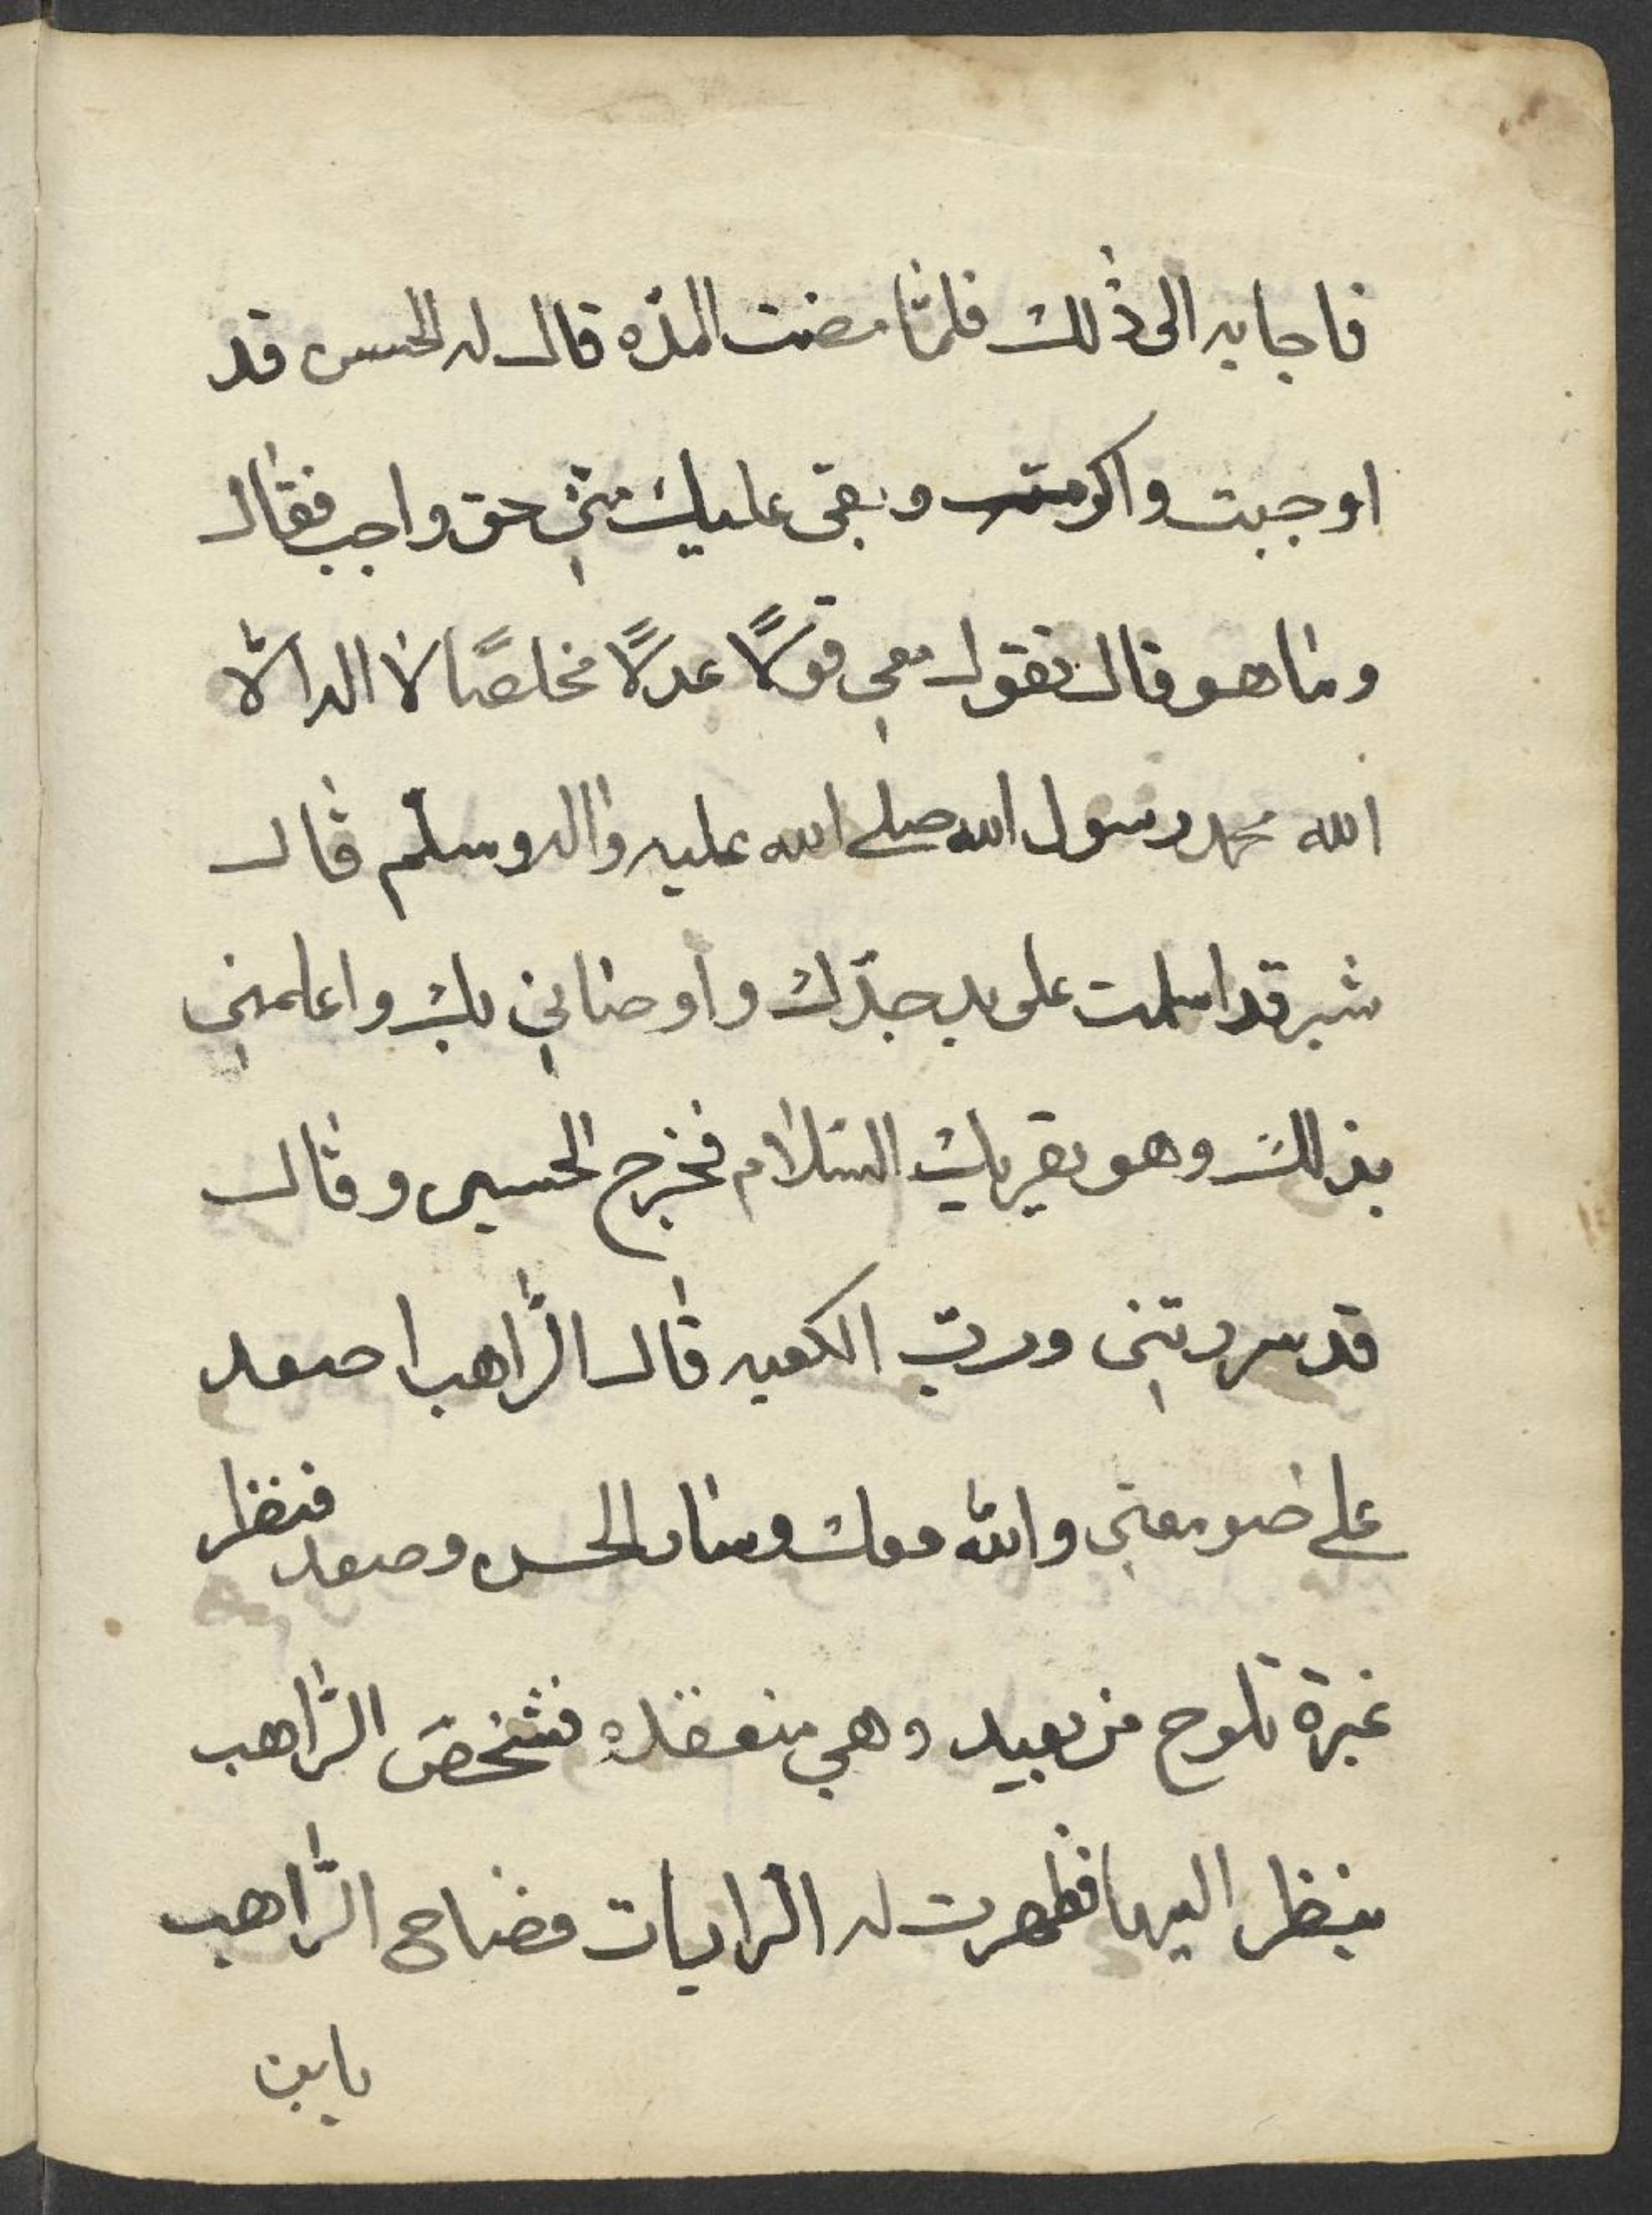 فاجابه الى ذلك فلمّا مضت المدّه قال له الحسن قد
اوجبت واكرمت وبقى عليك منّي حق واجب فقال
وما هو قال تقول معي قولًا عدلًا مخلصًا لا اله الّا
الله محمد رسول الله صلى الله عليه واله وسلّم قال
شبر قد اسلمت على يد جدّك واوصاني بك واعلمني
بذلك وهو يقريك السّلام فخرج الحسين وقال
قد سررتني وربّ الكعبه قال الرّاهب اصعد
على صومعتي والله معك وسار الحسن وصعد فنظر
غبرة تلوح من بعيد وهي منعقده فشخص الرّاهب
ينظر اليها فظهرت له الرايات فصاح الرّاهب
يابن